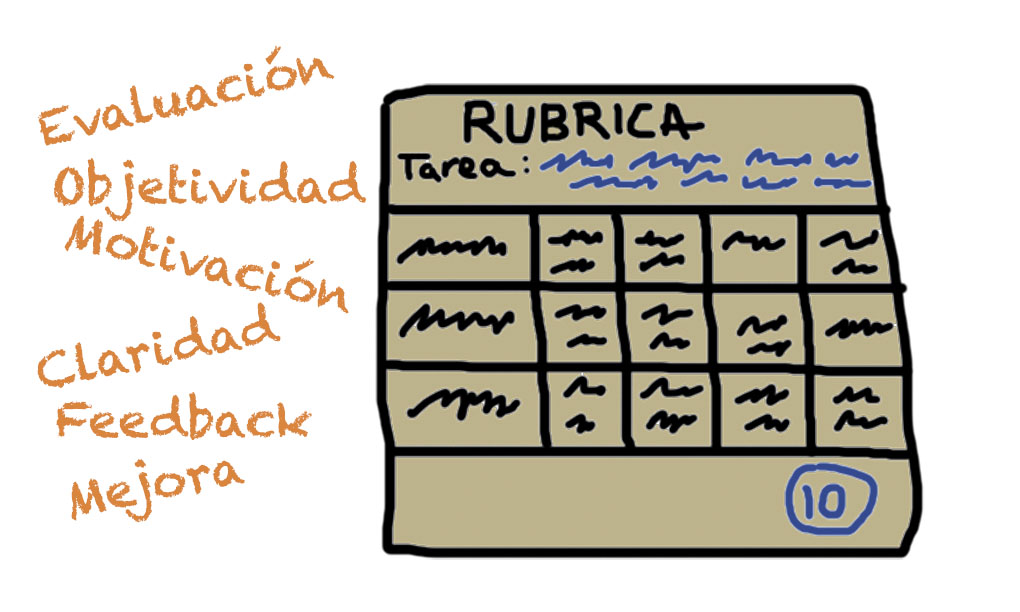 Evaluación
Objetividad
Motivación
Claridad
Feedback
Mejora
RUBRICA
Tarea:
10